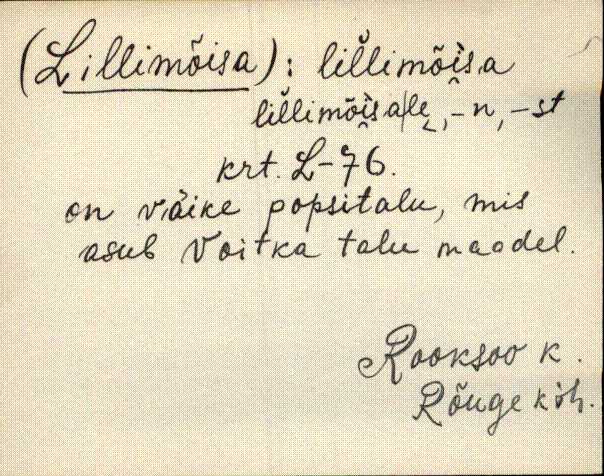 (Lillimõisa): lil̆limõi̭sa
lil̆limõi̭sa/le̬, -n, -st
krt. L-76.
on väike popsitalu, mis
asub Voitka talu maadel.
Rooksoo k.
Rõuge kih.